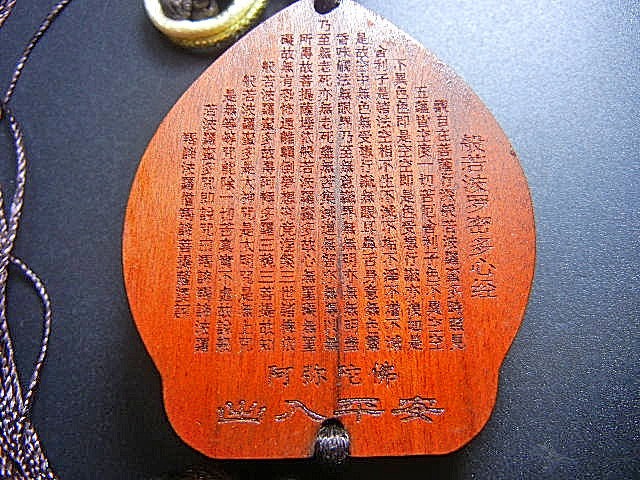 般若波羅密多心經
觀自在菩薩行深般若波羅蜜多時照見
五蘊皆空度一切苦厄舍利子色不異空空
不異色色即是空空即是色受想行識亦復如是
舍利子是諸法空相不生不滅不垢不淨不增不減
是故空中無色無受想行識無眼耳鼻舌身意無色聲
香味觸法無眼界乃至無意識界無無明亦無無明盡
乃至無老死亦無老死盡無苦集滅道無智亦無得以無
所得故菩提薩埵依般若波羅蜜多故心無罣礙無罣
礙故無有恐怖遠離顛倒夢想究竟涅槃三世諸佛依
般若波羅蜜多故得阿耨多羅三藐三菩提故知
般若波羅蜜多是大神咒是大明咒是無上咒
是無等等咒能除一切苦真實不虛故說般
若波羅蜜多咒即說咒曰揭諦揭諦波羅
揭諦波羅僧揭諦菩提薩婆訶
阿弥陀佛
出入平安